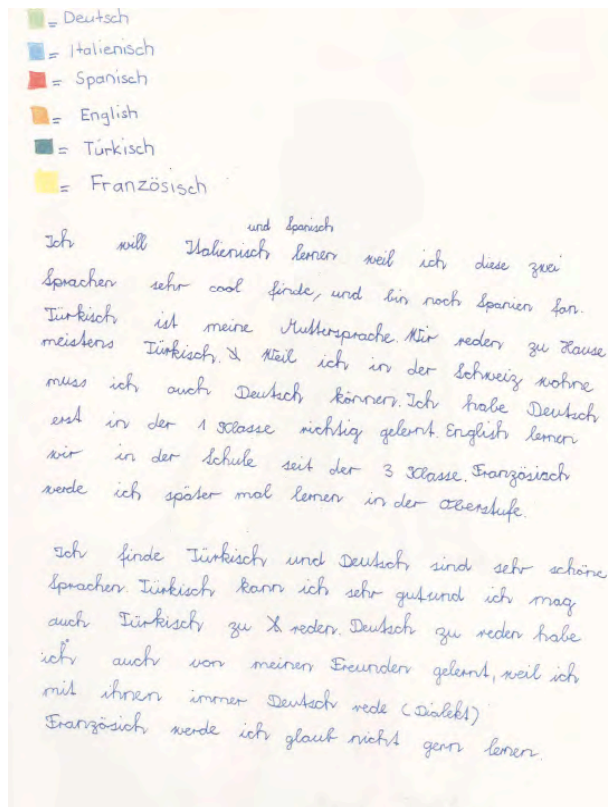 = Deutsch
= Italienisch
= Spanisch
= English
= Türkisch
= Französisch
und Spanisch
Ich will Italienisch lernen weil ich diese zwei
Sprachen sehr cool finde, und bin noch Spanien fan.
Türkisch ist meine Muttersprache. Wir reden zu Hause
meistens Türkisch. Weil ich in der Schweiz wohne
muss ich auch Deutsch können. Ich habe Deutsch
erst in der 1 Klasse richtig gelernt. English lernen
wir in der Schule seit der 3 Klasse. Französisch
werde ich später mal lernen in der Oberstufe.
Ich finde Türkisch und Deutsch sind sehr schöne
Sprachen. Türkisch kann ich sehr gut und ich mag
auch Türkisch zu reden. Deutsch zu reden habe
ich auch von meinen Freunden gelernt, weil ich
mit ihnen immer Deutsch rede (Dialekt)
Französich werde ich glaub nicht gern lernen.